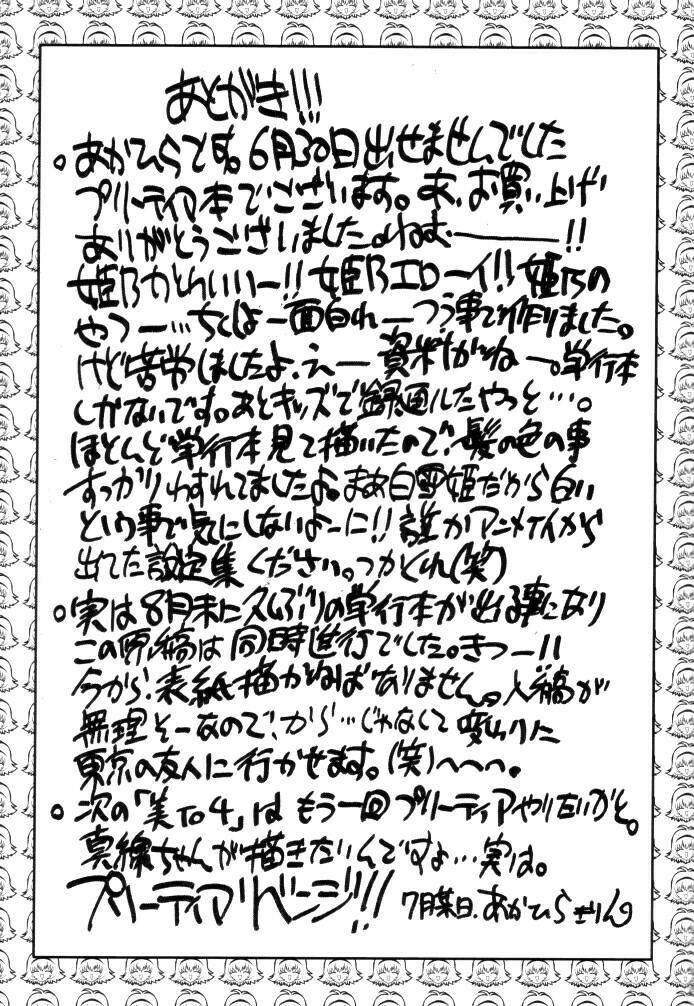 あとがき!!!
。あかひらです。6月30日出せませんでした
プリーティア本でございます。あ、お買い上げ
ありがとうございました。ねむ———!!
姫乃かわいいー!! 姫乃エローイ!! 姫乃の
やつー…ちくしょー面白れーつう事で作りました。
けど苦労しましたよ、えー資料がねー。単行本
しかないです。あとキッズで録画したやつと…。
ほとんど単行本見て描いたので、髪の色の事
すっかりわすれてましたよ。まあ白雪姫だから白い
という事で気にしないよーに!! 誰かアニメイから
出てた設定集ください。つかくれ(笑)
。実は8月末に久しぶりの単行本が出る事になり
この原稿は同時進行でした。きつー!!
今から、表紙描かねばなりません。入稿が
無理そーなので、から…じゃなくて変わりに
東京の友人に行かせます。(笑)へへへ。
。次の「美To4」はもう一回プリーティアやりたいかと。
真綿ちゃんが描きたいんですよ…実は。
プリーティアリベンジ!! 7月某日、あかひらきりん